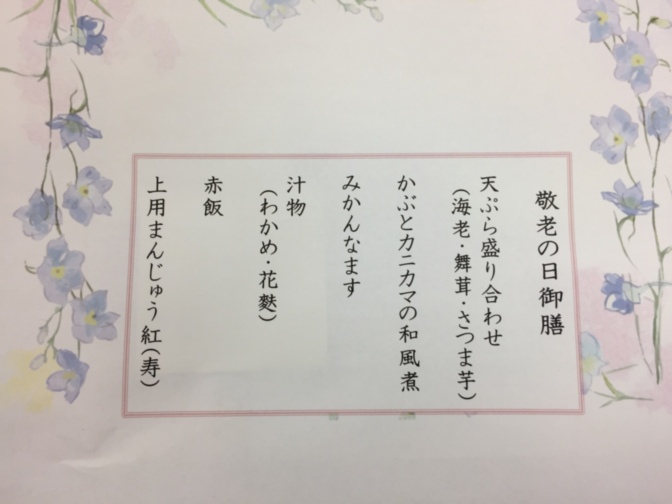 敬老の日御膳
天ぷら盛り合わせ
(海老・舞茸・さつま芋)
かぶとカニカマの和風煮
みかんなます
汁物
(わかめ・花麩)
赤飯
上用まんじゅう紅(寿)